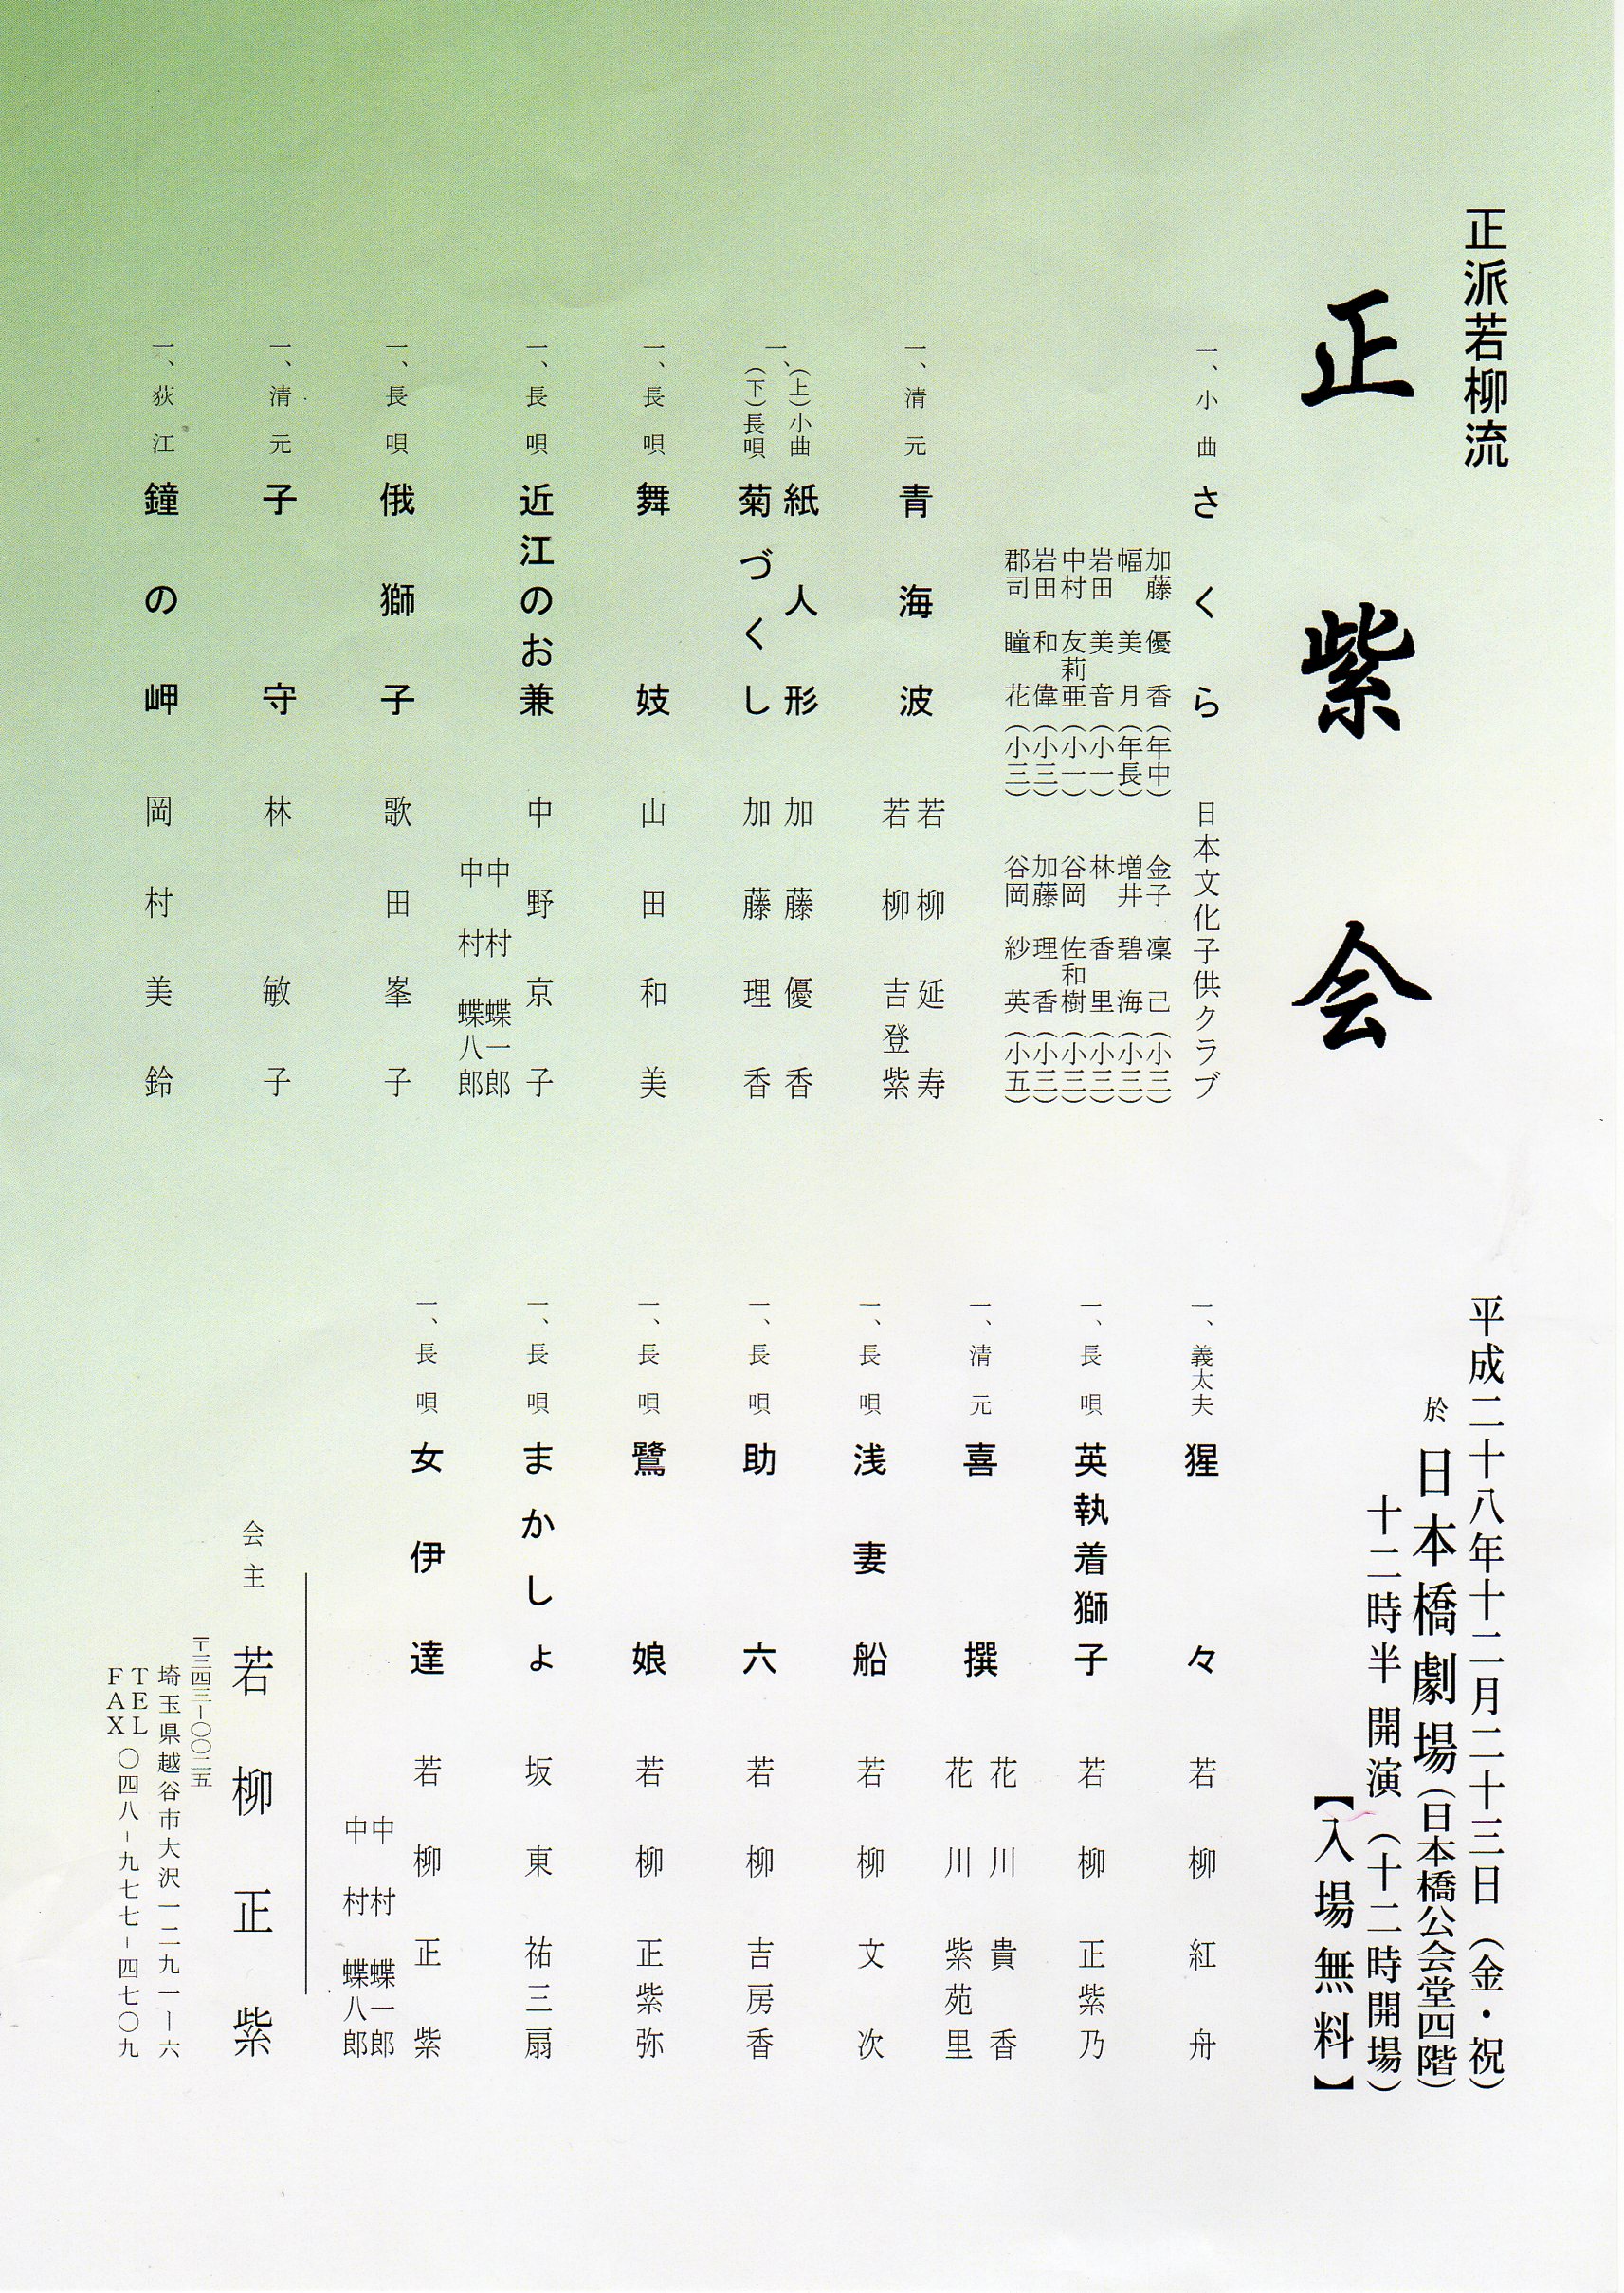 正派若柳流
正紫会
平成二十八年十二月二十三日（金・祝）
於 日本橋劇場（日本橋公会堂四階）
十二時半 開演（十二時開場）
【入場無料】
一、小曲 さくら 日本文化子供クラブ
加藤 優香（年中） 金子 凜己（小三）
幅 美月（年長） 増井 碧海（小三）
岩田 美音（小一） 林 香里（小三）
中村 友莉亜（小一） 谷岡 佐和樹（小三）
岩田 和偉（小三） 加藤 理香（小三）
郡司 瞳花（小三） 谷岡 紗英（小五）
一、清元 青海波 若柳延寿
若柳吉登紫
一、（上）小曲 紙人形 加藤優香
（下）長唄 菊づくし 加藤理香
一、長唄 舞妓 山田和美
一、長唄 近江のお兼 中野京子
中村蝶一郎
中村蝶八郎
一、長唄 俄獅子 歌田峯子
一、清元 子守 林敏子
一、荻江 鐘の岬 岡村美鈴
一、義太夫 猩々 若柳紅舟
一、長唄 英執着獅子 若柳正紫乃
一、清元 喜撰 花川貴香
花川紫苑里
一、長唄 浅妻船 若柳文次
一、長唄 助六 若柳吉房香
一、長唄 鷺娘 若柳正紫弥
一、長唄 まかしょ 坂東祐三扇
一、長唄 女伊達 若柳正紫
中村蝶一郎
中村蝶八郎
会主 若柳正紫
〒三四三-〇〇二五
埼玉県越谷市大沢一二九一-六
TEL
FAX 〇四八-九七七-四七〇九